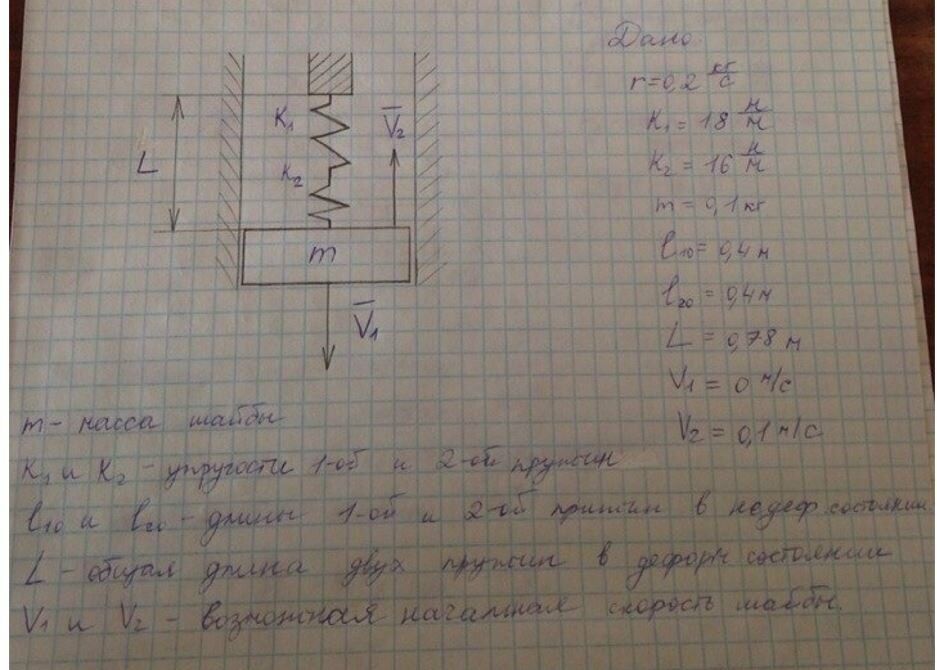 Дано
r = 0,2 кг/с
K₁ = 18 н/м
K₂ = 16 н/м
m = 0,1 кг
l₁₀ = 0,4 м
l₂₀ = 0,4 м
L = 0,78 м
V₁ = 0 м/с
V₂ = 0,1 м/с
K₁
V̅₂
L
K₂
m
V̅₁
m - масса шайбы
K₁ и K₂ - упругости 1-ой и 2-ой пружин
l₁₀ и l₂₀ - длины 1-ой и 2-ой пружин в недеф. состоянии
L - общая длина двух пружин в деформ состоянии
V₁ и V₂ - возможная начальная скорость шайбы.